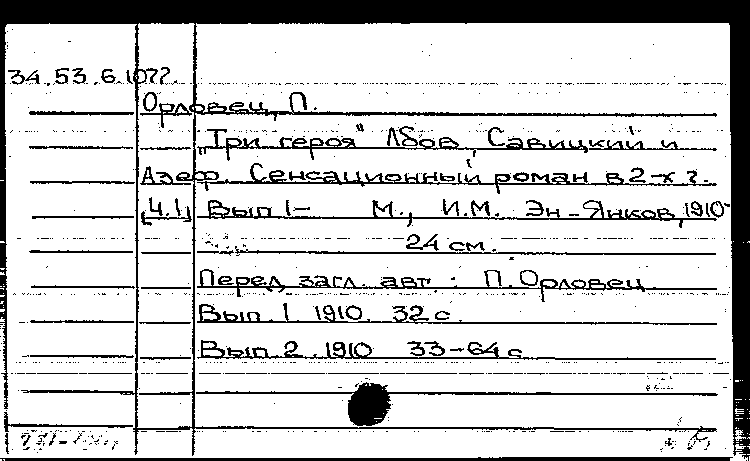 34.53.6.1072.
Орловец, П.
„Три героя" Лбов, Савицкий и
Азеф. Сенсационный роман в 2-х г.
[Ч.1] Вып 1- М., И.М. Эн-Янков, 1910-
24 см.
Перед загл. авт. : П. Орловец.
Вып. 1 1910. 32 с.
Вып. 2. 1910 33-64 с